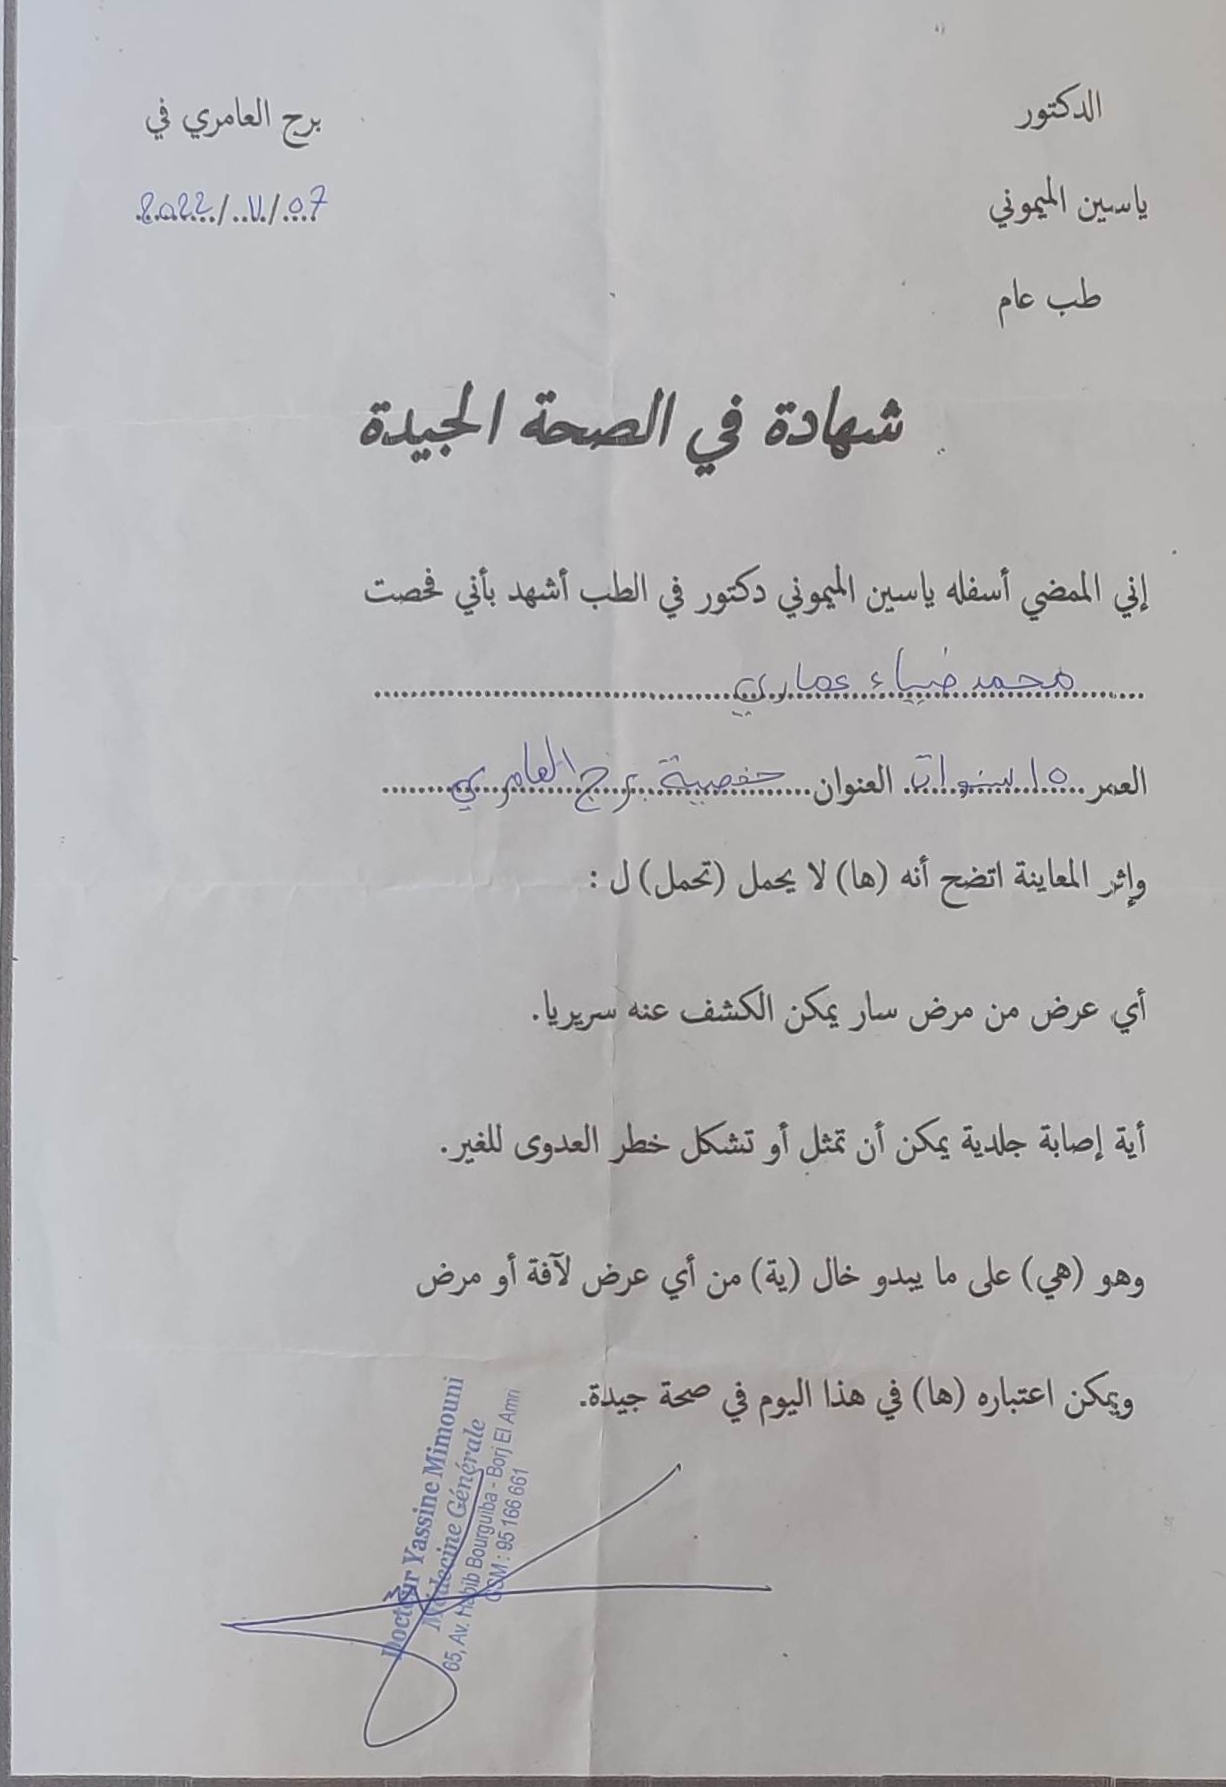 الدكتور
ياسين الميموني
طب عام
برج العامري في
2022/11/07
شهادة في الصحة الجيدة
إني الممضي أسفله ياسين الميموني دكتور في الطب أشهد بأني فحصت
محمد ضياء عماري
العمر 10 سنوات العنوان حفصية برج العامري
وإثر المعاينة اتضح أنه (ها) لا يحمل (تحمل) ل :
أي عرض من مرض سار يمكن الكشف عنه سريريا.
أية إصابة جلدية يمكن أن تمثل أو تشكل خطر العدوى للغير.
وهو (هي) على ما يبدو خال (ية) من أي عرض لآفة أو مرض
ويمكن اعتباره (ها) في هذا اليوم في صحة جيدة.
Docteur Yassine Mimouni
Médecine Générale
65, Av. Habib Bourguiba - Borj El Amri
GSM : 95 166 661